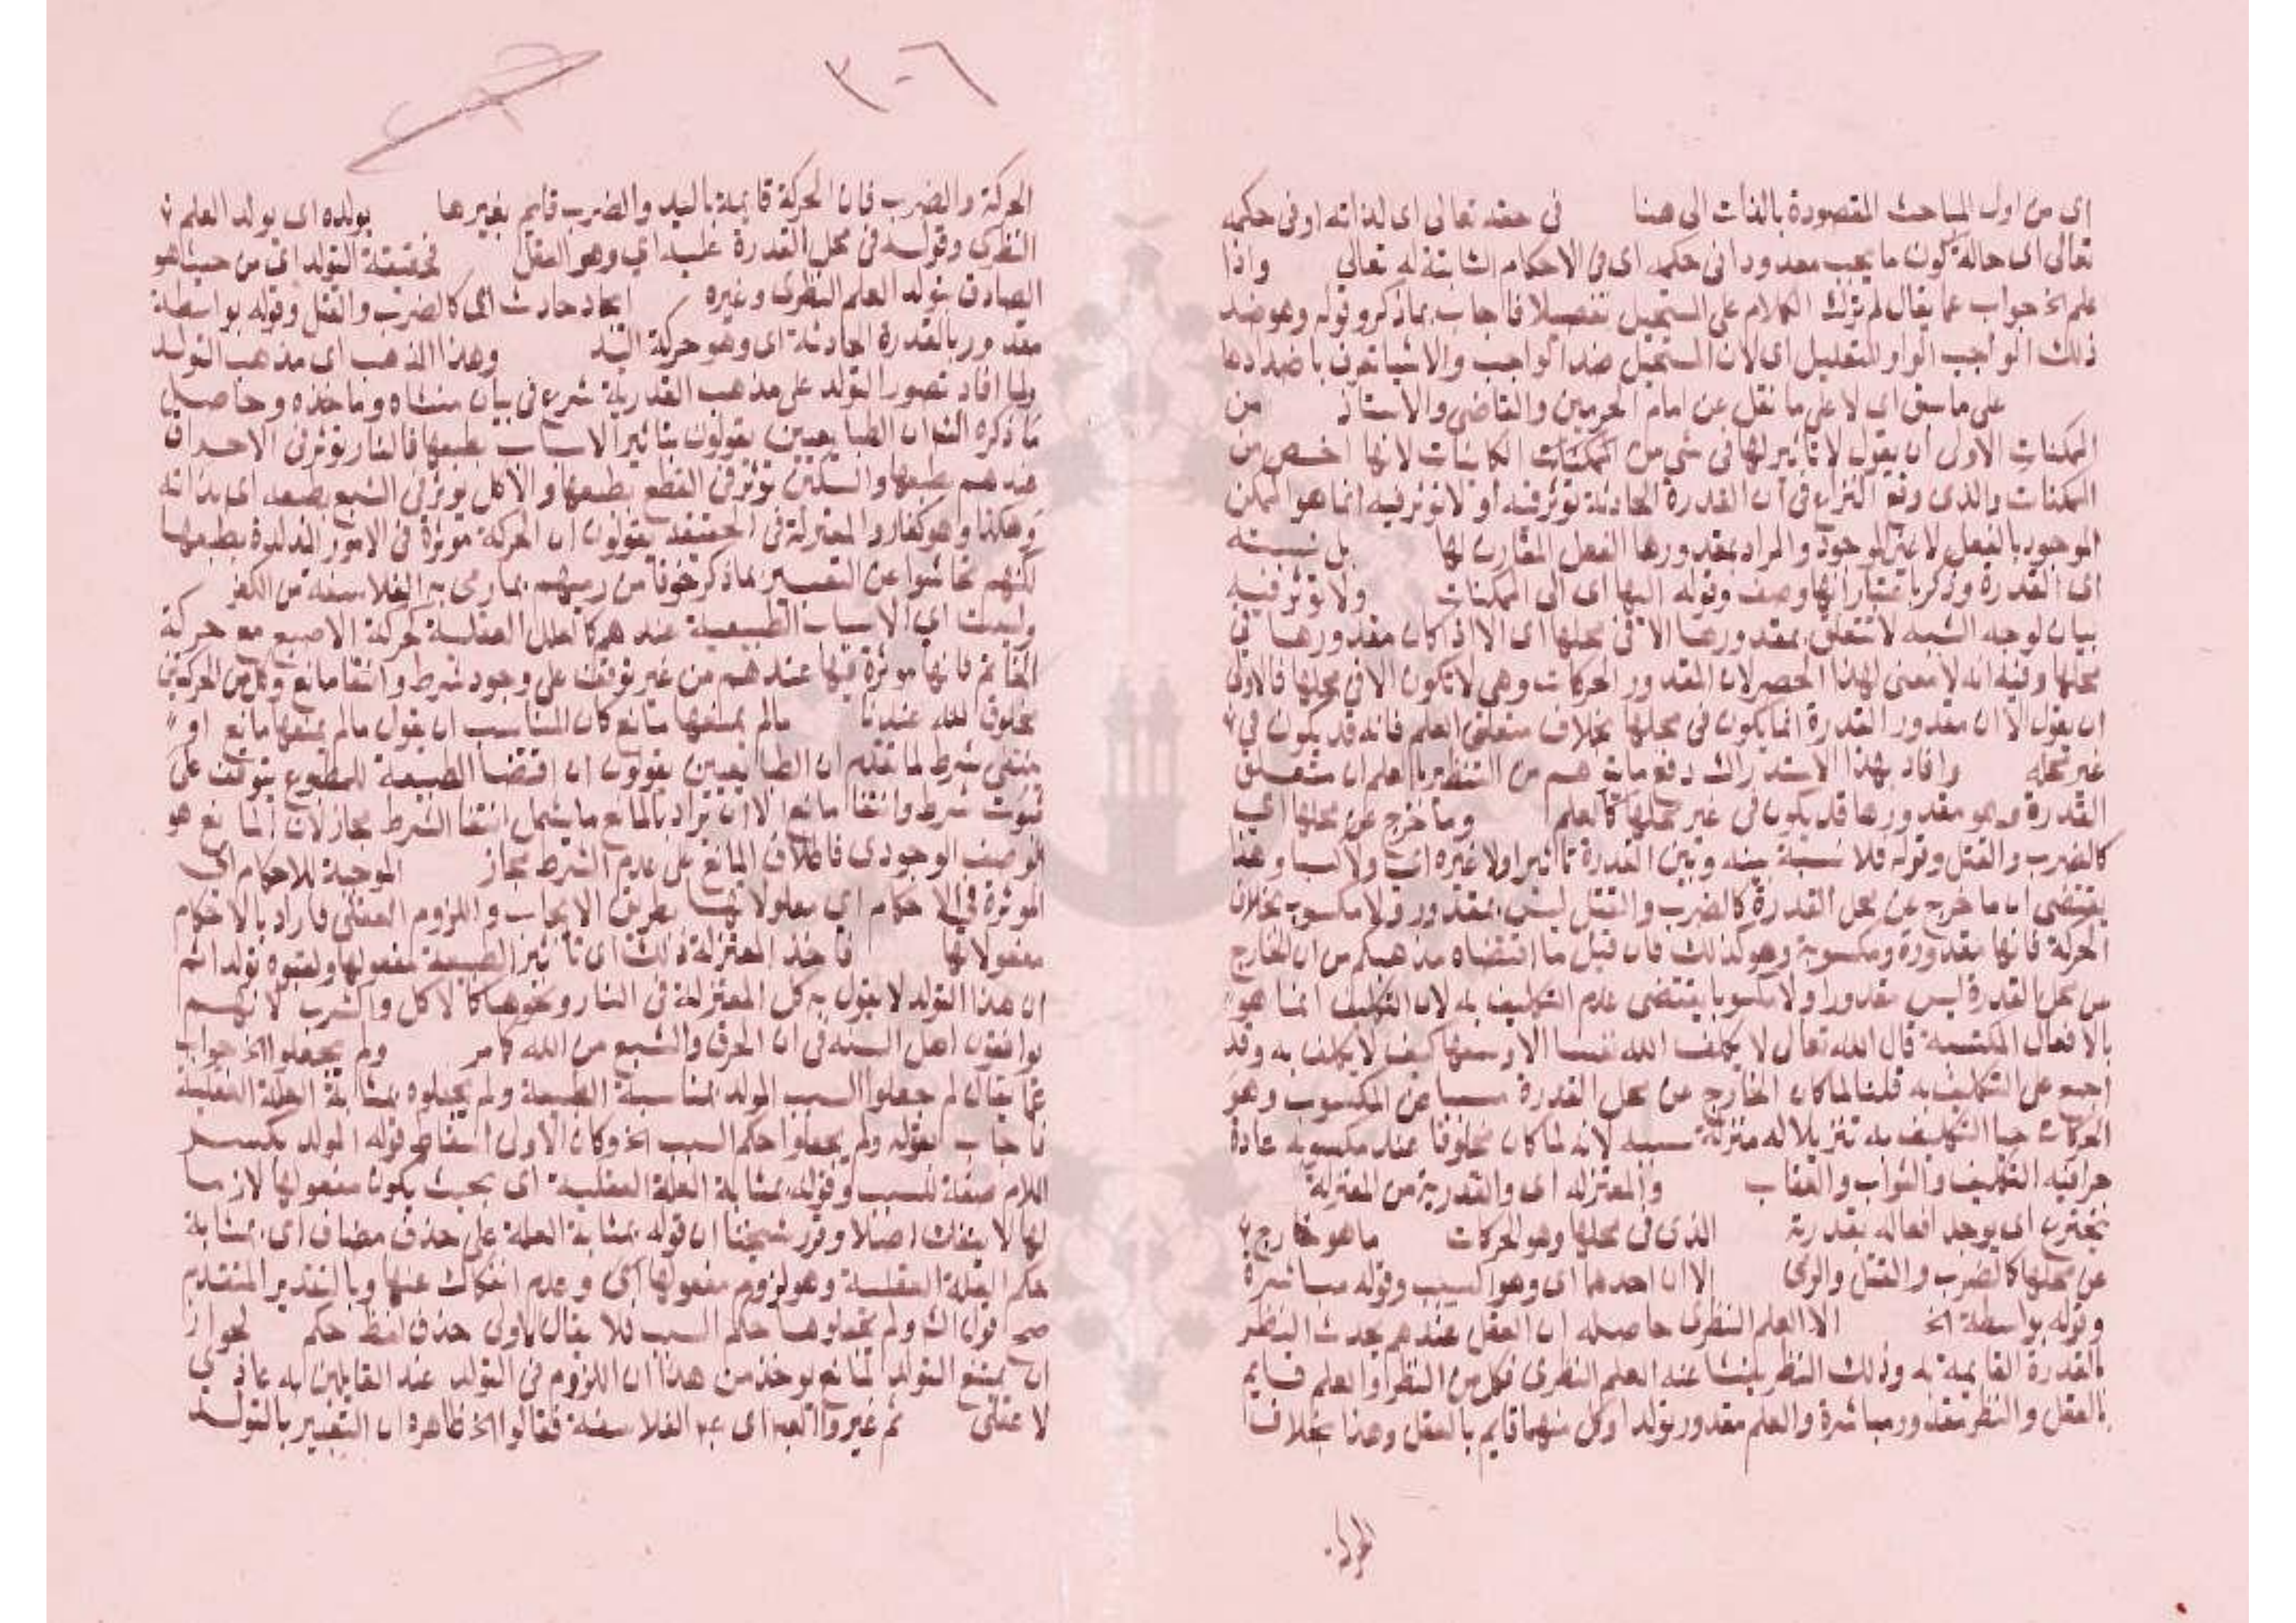 اى من اول المباحث المقصودة بالذات الى هنا في حقه تعالى اى لذاته او فى حكمه
تعالى اى حالة كون ما يجب معدودا فى حكمه اى فى الاحكام الثابتة له تعالى واذا
علم الخ جواب عما يقال لم ترك الكلام على المستحيل تفصيلا فاجاب بما ذكر وقوله وهو ضد
ذلك الواجب الواو للتعليل اى لان المستحيل ضد الواجب والاشيا تعرف باضدادها
على ما سبق اى لا على ما نقل عن امام الحرمين والقاضى والاستاذ من
الممكنات الاولى ان يقول لا تاثير لها فى شى من الممكنات الكاينات لانها اخص من
الممكنات والذى وقع النزاع فى ان القدرة الحادثة توثر فيه او لا توثر فيه انما هو الممكن
الموجود بالفعل لا غير الموجود والمراد بمقدورها الفعل المقارن لها بل نسبته
اى القدرة وذكر باعتبار انها وصف وقوله اليها اى الى الممكنات ولا توثر فيه
بيان لوجه الشبه لا تتعلق بمقدورها الا فى محلها اى الا اذا كان مقدورها فى
محلها وفيه انه لا معنى لهذا الحصر لان المقدور الحركات وهى لا تكون الا فى محلها فالاولى
ان يقول الا ان مقدور القدرة انما يكون فى محلها بخلاف متعلق العلم فانه قد يكون فى
غير محله وافاد بهذا الاستدراك دفع ما يتوهم من التنظير بالعلم ان متعلق
القدرة وهو مقدورها قد يكون فى غير محلها كالعلم وما خرج عن محلها اى
كالضرب والقتل وقوله فلا نسبة بينه وبين القدرة تاثيرا ولا غيره اى ولا كسبا وهذا
يقتضى ان ما خرج عن محل القدرة كالضرب والقتل ليس بمقدور ولا مكسوب بخلاف
الحركة فانها مقدورة ومكسوبة وهو كذلك فان قيل ما اقتضاه مذهبكم من ان الخارج
عن محل القدرة ليس مقدورا ولا مكسوبا يقتضى عدم التكليف به لان التكليف انما هو
بالافعال المكتسبة قال الله تعالى لا يكلف الله نفسا الا وسعها كيف لا يكلف به وقد
اجمع على التكليف به قلنا لما كان الخارج عن محل القدرة مسببا عن المكسوب وهو
الحركات جا التكليف به تنزيلا له منزلة سببه لانه لما كان مخلوقا عند مكسوبه عادة
جرا فيه التكليف والثواب والعقاب والمعتزله اى والقدرية من المعتزلة
يخترع اى يوجد افعاله بقدرته الذى فى محلها وهو الحركات ما هو خارج
عن محلها كالضرب والقتل والرمى الا ان احدهما اى وهو السبب وقوله مباشرة
وقوله بواسطة الخ الا العلم النظرى حاصله ان العقل عندهم يحدث النظر
بالقدرة القايمة به وذلك النظر ينشا عنه العلم النظرى فكل من النظر والعلم قايم
بالعقل والنظر مقدور مباشرة والعلم مقدور تولدا وكل منهما قايم بالعقل وهذا بخلاف
٢٠٦
الحركة والضرب فان الحركة قايمة باليد والضرب قايم بغيرها يولده اى يولد العلم
النظرى وقوله فى محل القدرة عليه اى وهو العقل فحقيقة التولد اى من حيث هو
الصادق بتولد العلم النظرى وغيره ايجاد حادث اى كالضرب والقتل وقوله بواسطة
مقدور بالقدرة الحادثة اى وهو حركة اليد وهذا المذهب اى مذهب التوليد
ولما افاد تصور التولد على مذهب القدرية شرع فى بيان منشاه وماخذه وحاصل
ما ذكره الش ان الطبايعيين يقولون بتاثير الاسباب بطبعها فالنار توثر فى الاحراق
عندهم بطبعها والسكين توثر فى القطع بطبعها والاكل يوثر فى الشبع بطبعه اى بذاته
وهكذا وهو كفار والمعتزلة فى الحقيقة يقولون ان الحركة موثرة فى الامور المتولدة بطبعها
لكنهم تحاشوا عن التعبير بما ذكر خوفا من رميهم بما رمى به الفلاسفه من الكفر
وليست اى الاسباب الطبيعية عندهم كالعلل العقلية كحركة الاصبع مع حركة
الخاتم فانها موثرة فيها عندهم من غير توقف على وجود شرط وانتفا مانع وكل من الحركتين
مخلوق لله عندنا مالم يمنعها مانع كان المناسب ان يقول مالم يمنعها مانع او
ينتفى شرط لما تقدم ان الطبايعيين يقولون ان اقتضا الطبيعة للمطبوع يتوقف على
ثبوت شرط وانتفا مانع الا ان يراد بالمانع ما يشمل انتفا الشرط مجازا لان المانع هو
الوصف الوجودى فاطلاق المانع على عدم الشرط مجاز الموجبة للاحكام اى
الموثرة فى الاحكام اى معلولاتها بطريق الايجاب واللزوم العقلى فاراد بالاحكام
معلولاتها فاخذ المعتزلة ذلك اى تاثير الطبيعة مفعولها ولقبوه تولدا ثم
ان هذا التولد لا يقول به كل المعتزلة فى النار ونحوها كالاكل والشرب لانهم
يوافقون اهل السنه فى ان الحرق والشبع من الله كما مر ولم يجعلوا الخ جواب
عما يقال لم جعلوا السبب المولد بمناسبة الطبيعة ولم يجعلوه بمثابة العلة العقلية
فاجاب بقوله ولم يجعلوا حكم السبب الخ وكان الاولى اسقاط قوله المولد بكسر
اللام صفة للسبب وقوله بمثابة العلة العقلية اى بحيث يكون مفعولها لازما
لها لا ينفك اصلا وقرر شيخنا ان قوله بمثابة العلة على حذف مضاف اى بمثابة
حكم العلة العقلية وهو لزوم مفعولها اى وعدم انفكاك عنها وبالتقدير المتقدم
صح قول الش ولم يجعلوها حكم السبب فلا يقال الاولى حذف لفظ حكم لجواز
ان يمتنع التولد لمانع يوخذ من هذا ان اللزوم فى التولد عند القايلين به عادى
لا عقلى ثم غيروا العبـ اى عبـ الفلاسفة فقالوا الخ ظاهره ان التعبير بالتولد